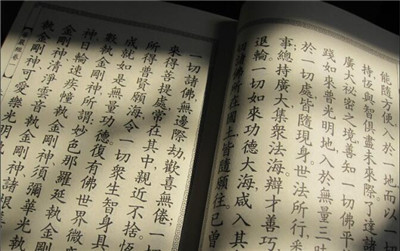 能隨方便。入於一地。而以一
持。恆與智俱。盡未來際。了達諸
廣大祕密之境。善知一切佛平
踐如來普光明地。入於無量三昧
於一切處。皆隨現身。世法所行。
事總持廣大。集眾法海。辯才善巧。
退輪。一切如來功德大海。咸入其
切諸佛所在國土。皆隨願往。已曾
一切諸佛。無邊際劫。歡喜無倦。一
來得菩提處。常在其中。親近不捨。恆
所得普賢願海。令一切眾生。智身具
成就如是無量功德。復有佛世界微
執金剛神。所謂妙色那羅延執金
神。日輪速疾幢執金剛神。須彌華光執
金剛神。清淨雲音執金剛神。諸根
執金剛神。可愛樂光明